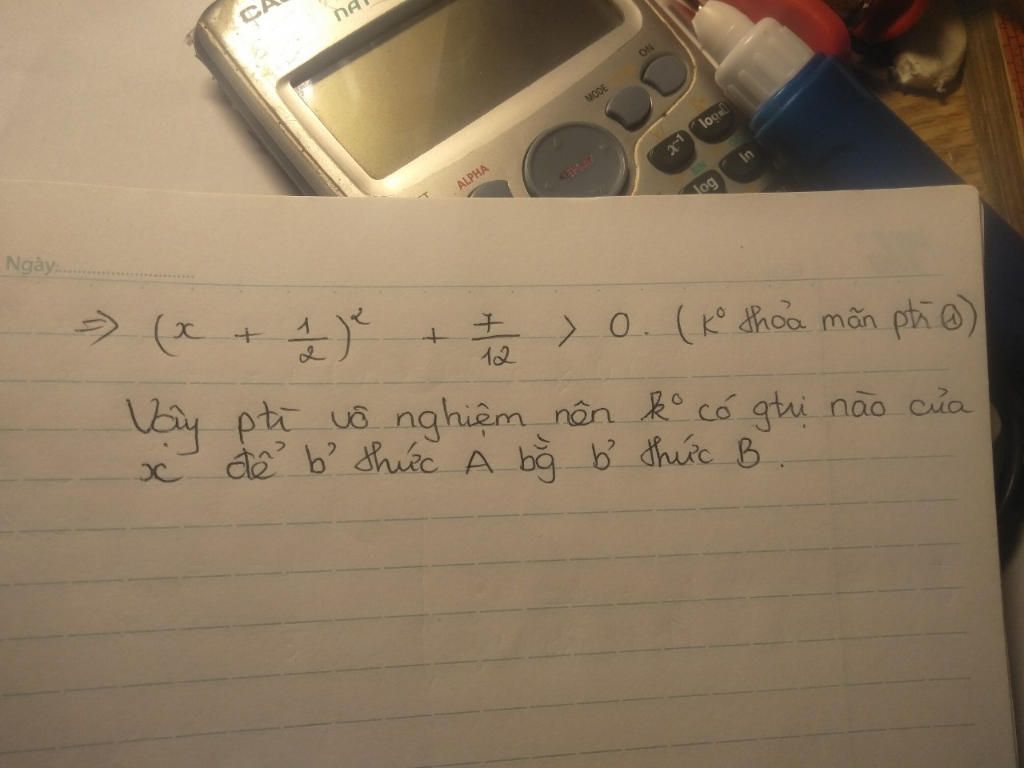 CAS
NAT
ON
MODE
ALPHA
x⁻¹
log
ln
log
Ngày:
=> (x + 1/2)² + 7/12 > 0. (k° thỏa mãn ptr̀ ①)
Vậy ptr̀ vô nghiệm nên k° có gtrị nào của
x để b' thức A bg̀ b' thức B.